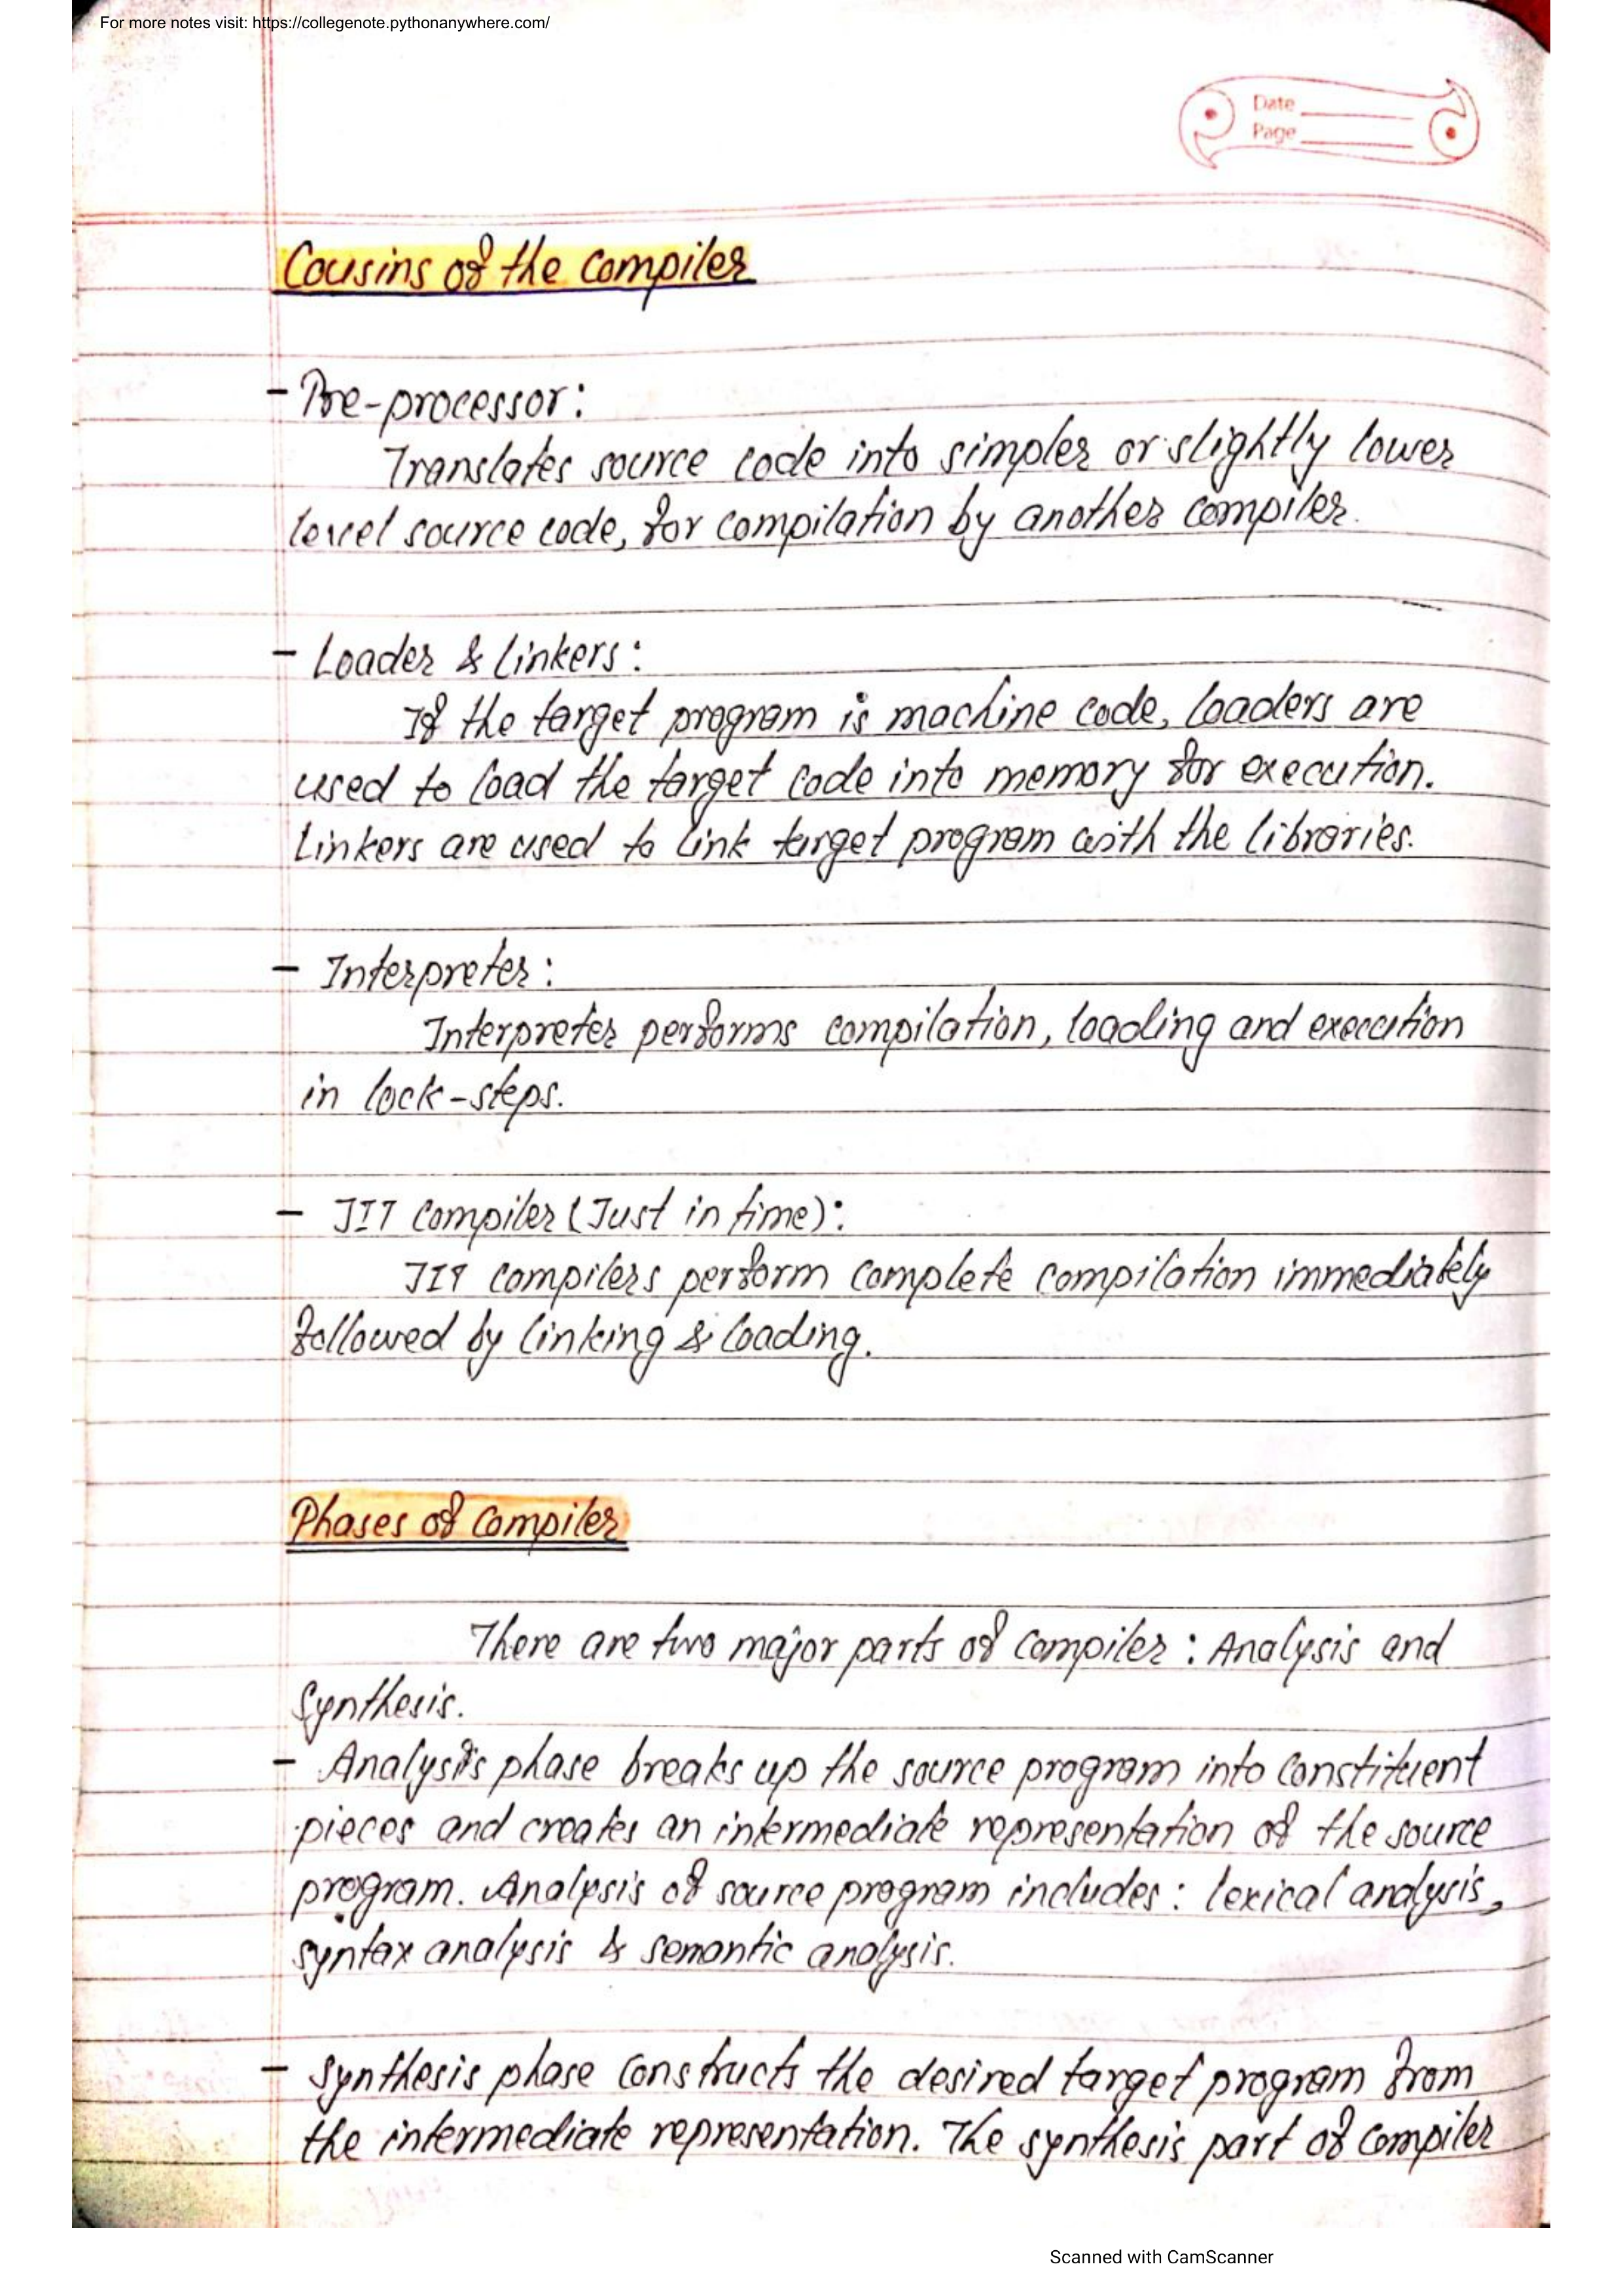 For more notes visit: https://collegenote.pythonanywhere.com/
Date
Page
Cousins of the Compiler
- Pre-processor:
Translates source code into simpler or slightly lower
level source code, for compilation by another compiler.
- Loader & Linkers:
If the target program is machine code, loaders are
used to load the target code into memory for execution.
Linkers are used to link target program with the libraries.
- Interpreter:
Interpreter performs compilation, loading and execution
in lock-steps.
- JIT Compiler (Just in time):
JIT compilers perform complete compilation immediately
followed by linking & loading.
Phases of Compiler
There are two major parts of compiler: Analysis and
Synthesis.
- Analysis phase breaks up the source program into constituent
pieces and creates an intermediate representation of the source
program. Analysis of source program includes: lexical analysis,
syntax analysis & semantic analysis.
- Synthesis phase constructs the desired target program from
the intermediate representation. The synthesis part of compiler
Scanned with CamScanner